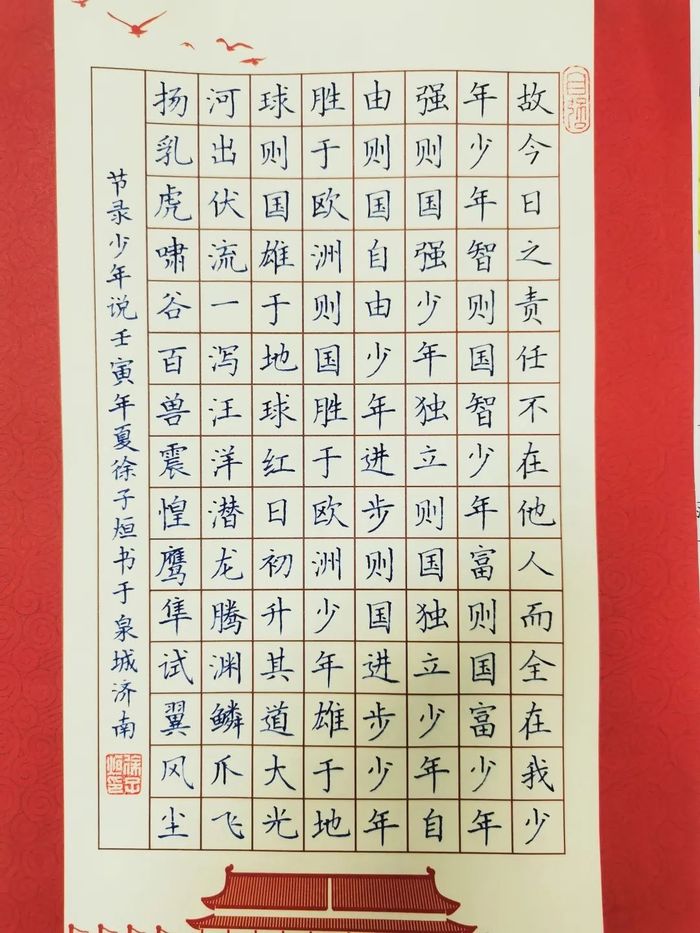 故今日之责任不在他人而全在我少
年少年智则国智少年富则国富少年
强则国强少年独立则国独立少年自
由则国自由少年进步则国进步少年
胜于欧洲则国胜于欧洲少年雄于地
球则国雄于地球红日初升其道大光
河出伏流一泻汪洋潜龙腾渊鳞爪飞
扬乳虎啸谷百兽震惶鹰隼试翼风尘
节录少年说壬寅年夏徐子烜书于泉城济南